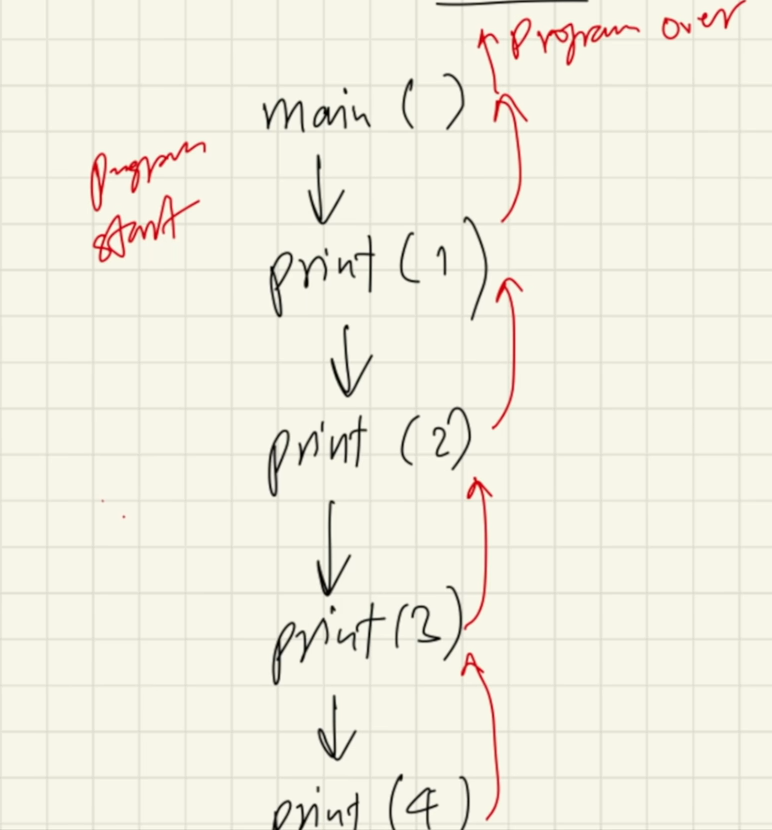 Program over
main ()
Program
start
print (1)
print (2)
print (3)
print (4)